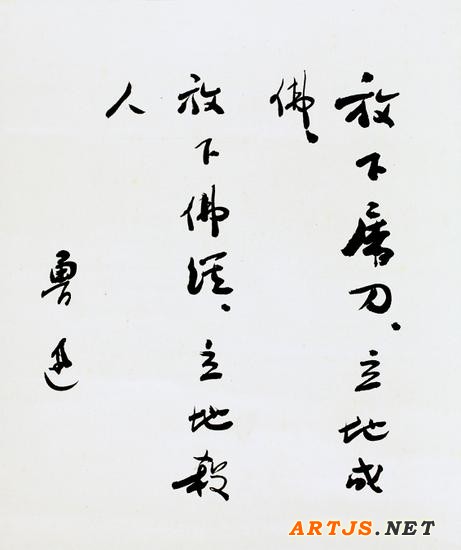 放下屠刀、立地成
佛、
放下佛经、立地殺
人
鲁迅
ARTJS.NET